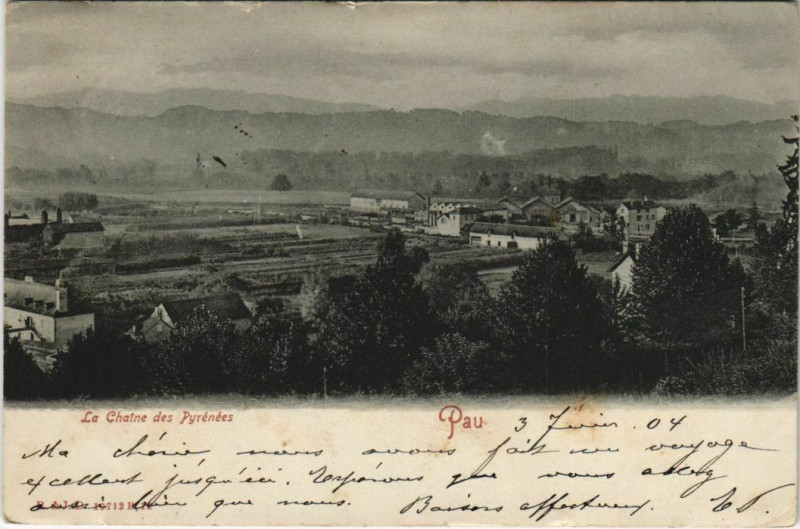 La Chaîne des Pyrénées
Pau
3 Fevier 04
Ma chérie nous avons fait un voyage
excellent jusqu'ici. Espérons que vous allez
aussi bien que nous. Baisers affectueux